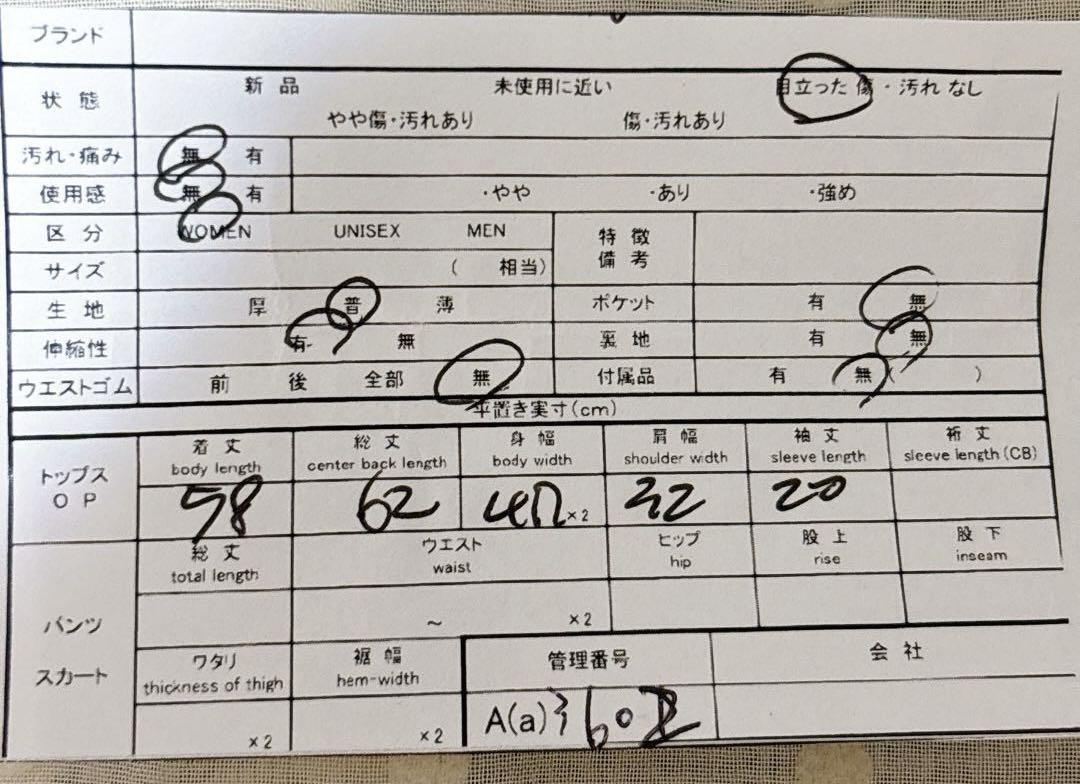 ブランド
状態 新品 未使用に近い 目立った傷・汚れなし
やや傷・汚れあり 傷・汚れあり
汚れ・痛み 無 有
使用感 無 有 ・やや ・あり ・強め
区分 WOMEN UNISEX MEN 特徴備考
サイズ ( 相当)
生地 厚 普 薄 ポケット 有 無
伸縮性 有 無 裏地 有 無
ウエストゴム 前 後 全部 無 付属品 有 無 ( )
平置き実寸(cm)
トップス OP 着丈 総丈 身幅 肩幅 袖丈 裄丈
body length center back length body width shoulder width sleeve length sleeve length (CB)
58 62 ×2 32 20
総丈 ウエスト ヒップ 股上 股下
total length waist hip rise inseam
パンツ ~ ×2
スカート ワタリ 裾幅 管理番号 会社
thickness of thigh hem-width
×2 ×2 A(a)